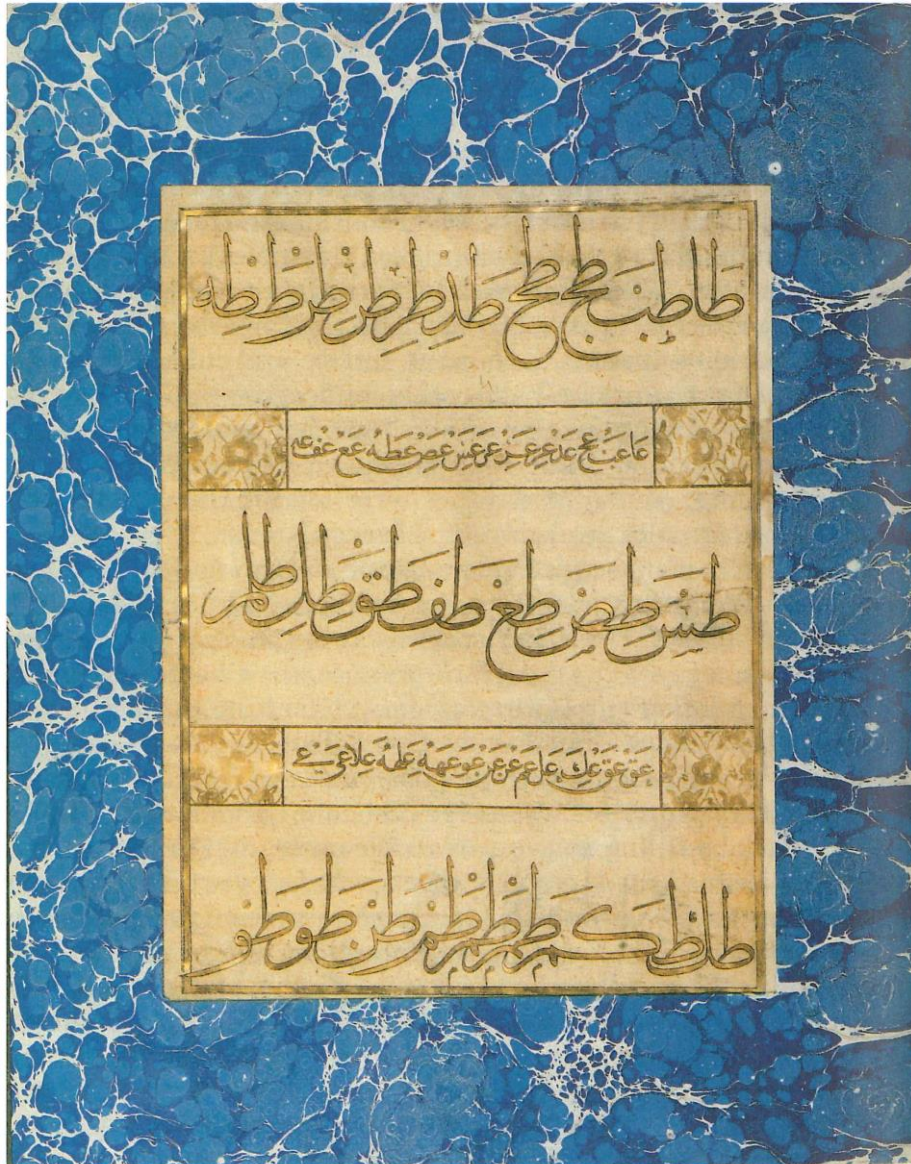 طا طب طج طح طد طر طر طر طط طه
عا عب عج عد عر عر عر عس عص عط عع عف
طس طص طع طف طق طل طلم
عق عق عك عل عم عن عن عو عهه علا عى
طل طكم طم طم طم طن طو طو